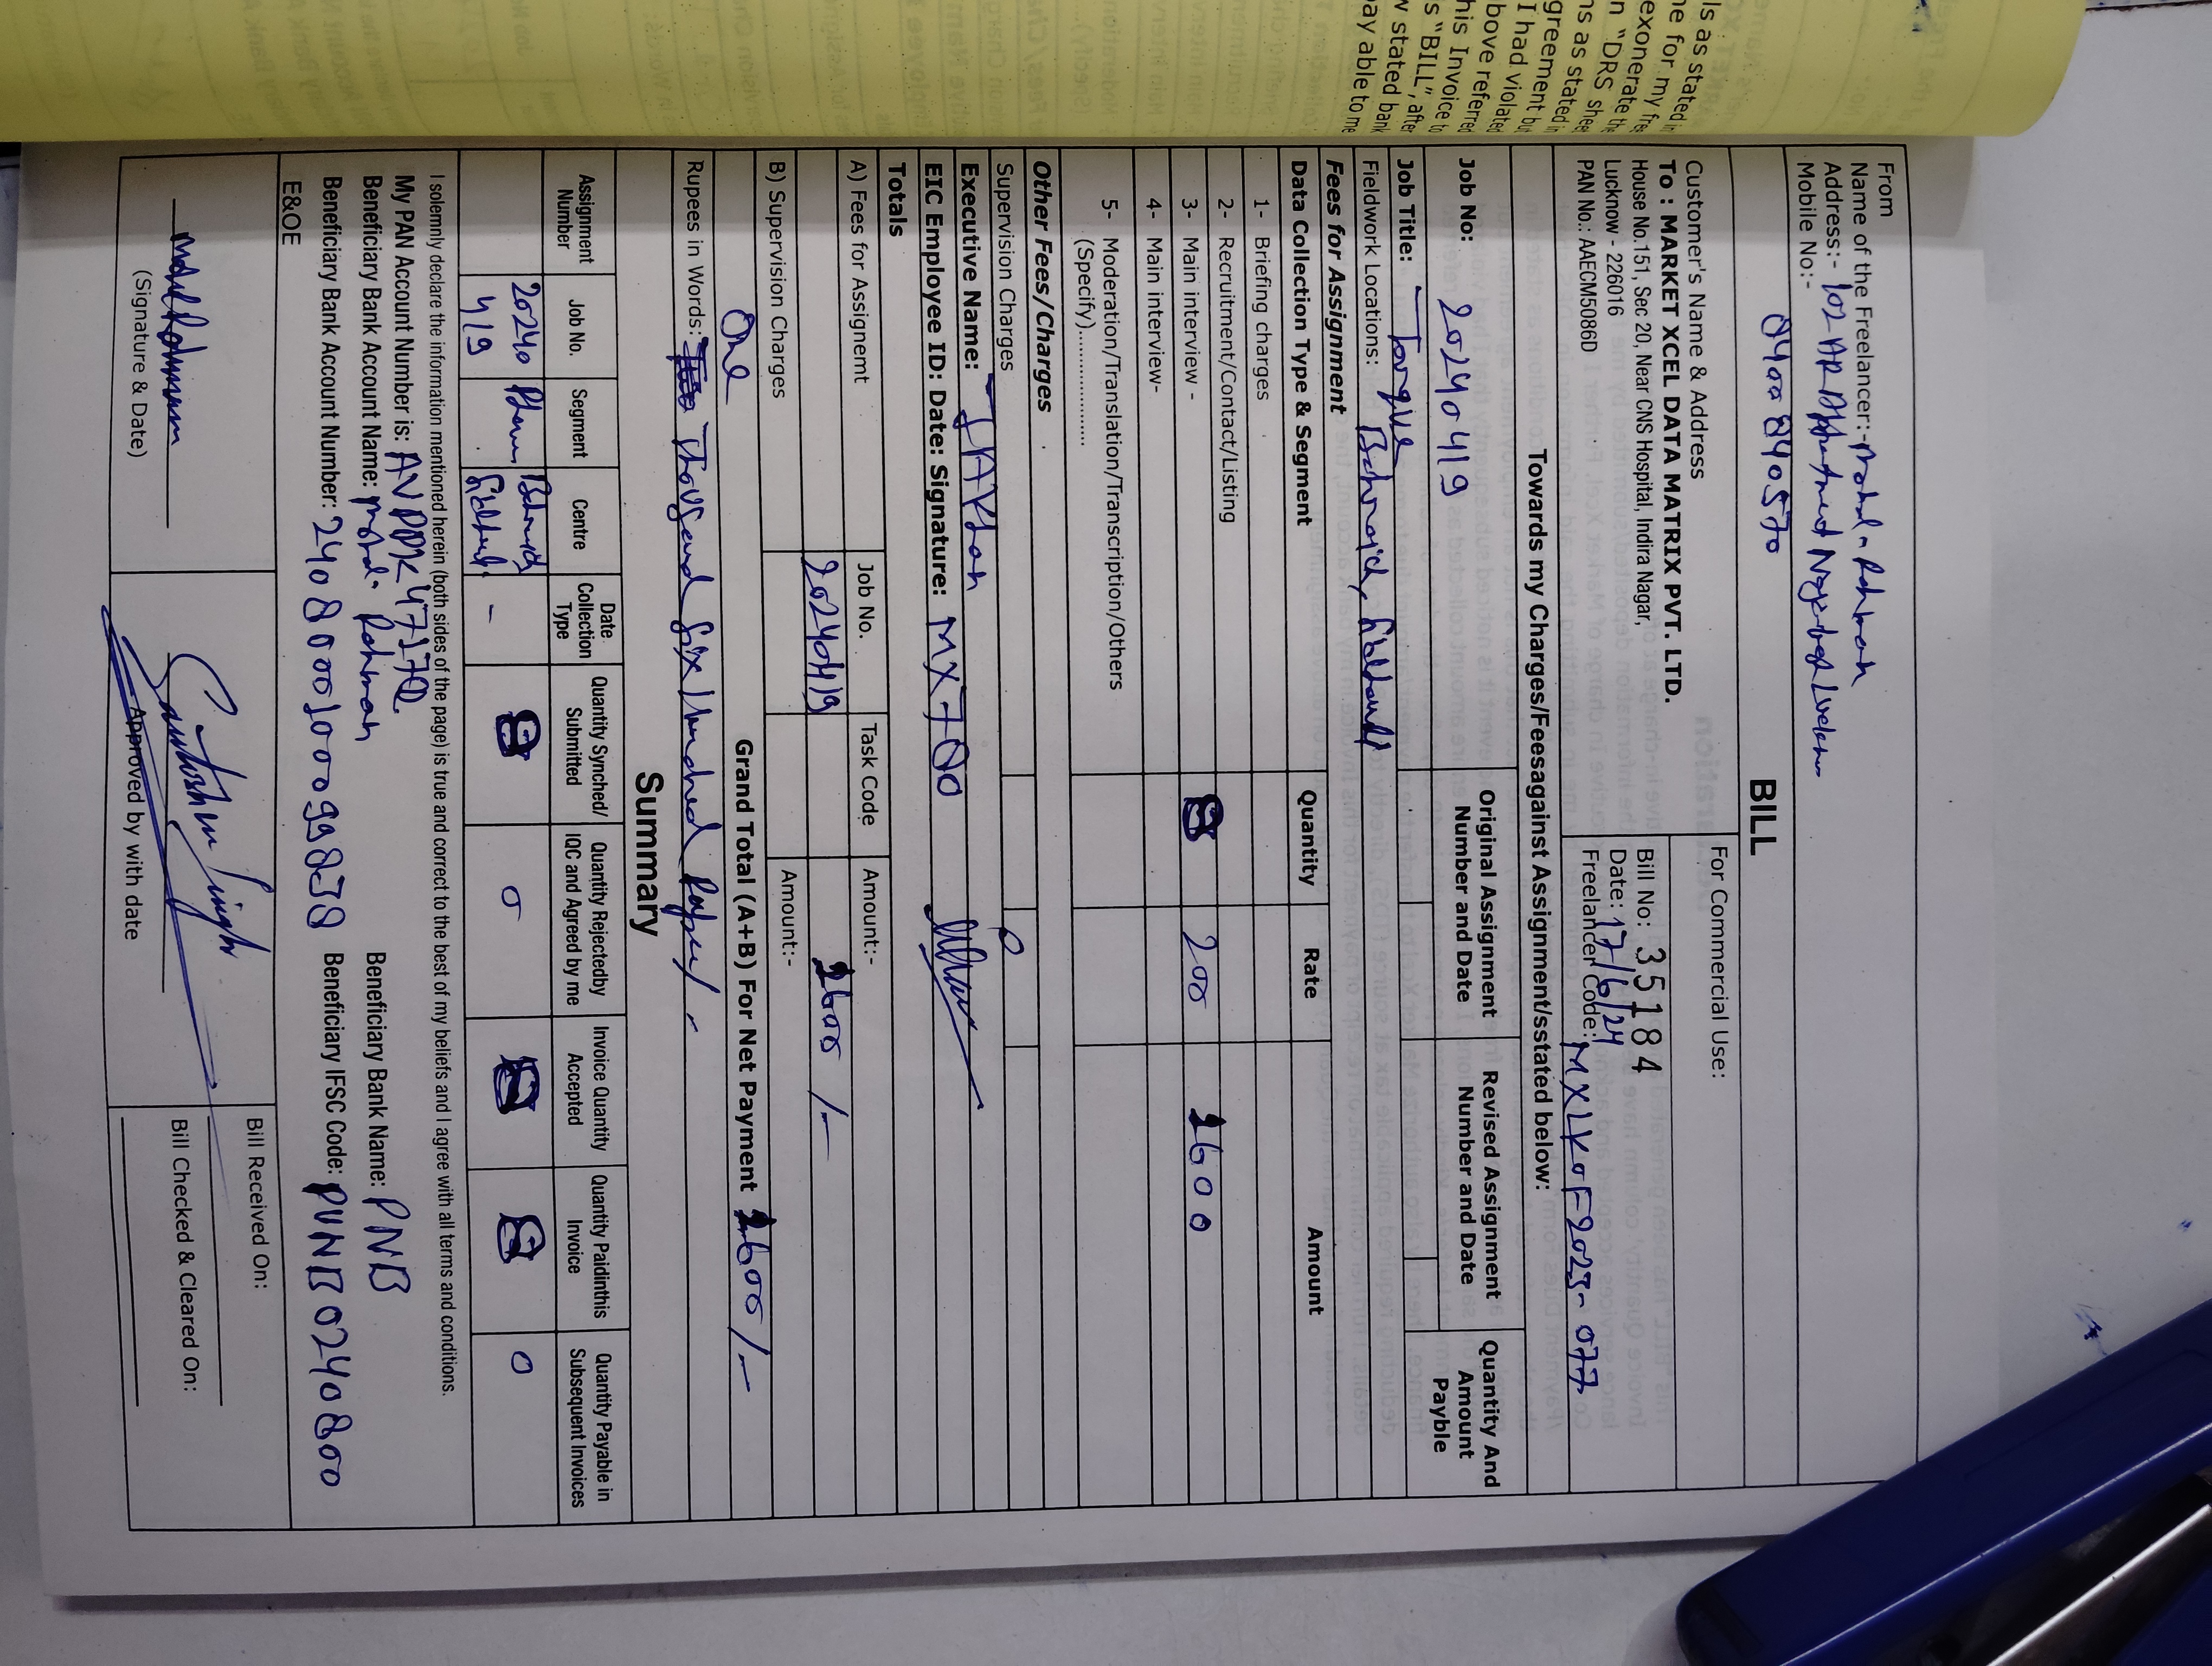 ls as stated in
ne for my fre
exonerate the
n "DRS shee
ns as stated
greement in
I had violate
bove referred
his Invoice to
s "BILL", after
w stated bank
ay able to me
From
Name of the Freelancer:- Mohd- Rahman
Address:- 102 AR Nagar
Mobile No:-
8400840570
BILL
Customer's Name & Address
To : MARKET XCEL DATA MATRIX PVT. LTD.
House No.151, Sec 20, Near CNS Hospital, Indira Nagar,
Lucknow - 226016
PAN No.: AAECM5086D
For Commercial Use:
Bill No: 35184
Date: 17/6/24
Freelancer Code: MXLKOF2023-077
Towards my Charges/Feesagainst Assignment/sstated below:
Job No: 20240419
Original Assignment Number and Date
Revised Assignment Number and Date
Quantity And Amount Payble
Job Title: Torque
Fieldwork Locations: Bahraich,
Fees for Assignment
Data Collection Type & Segment Quantity Rate Amount
1- Briefing charges
2- Recruitment/Contact/Listing
3- Main interview - 8 200 1600
4- Main interview-
5- Moderation/Translation/Transcription/Others
(Specify)................
Other Fees/Charges
Supervision Charges 0
Executive Name:
EIC Employee ID: Date: Signature: MX700
Totals
A) Fees for Assignemt Job No. Task Code Amount:-
20240419 1600/-
B) Supervision Charges Amount:-
Grand Total (A+B) For Net Payment 1600/-
One
Rupees in Words: Thousand Six hundred
Summary
Assignment Number Job No. Segment Centre Date Collection Type Quantity Synched/ Submitted Quantity Rejectedby IQC and Agreed by me Invoice Quantity Accepted Quantity Paidinthis Invoice Quantity Payable in Subsequent Invoices
20240 - 8 0 8 8 0
419
I solemnly declare the information mentioned herein (both sides of the page) is true and correct to the best of my beliefs and I agree with all terms and conditions.
My PAN Account Number is:
Beneficiary Bank Account Name: Mohd- Rahman Beneficiary Bank Name: PNB
Beneficiary Bank Account Number: Beneficiary IFSC Code: PUNB0240800
E&OE
(Signature & Date)
Santosh Singh
Approved by with date
Bill Received On:
Bill Checked & Cleared On: